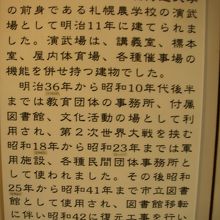 の前身である札幌農学校の演武
場として明治11年に建てられまし
た。演武場は、講義室、標本
室、屋内体育場、各種催事場の
機能を併せ持つ建物でした。
明治36年から昭和10年代後半
までは教育団体の事務所、付属
図書館、文化活動の場として利
用され、第2次世界大戦を挟む
昭和18年から昭和23年までは軍
用施設、各種民間団体事務所とし
て使われました。その後昭和
25年から昭和41年まで市立図書
館として、図書館移転
に伴い昭和42に復元工事を行い